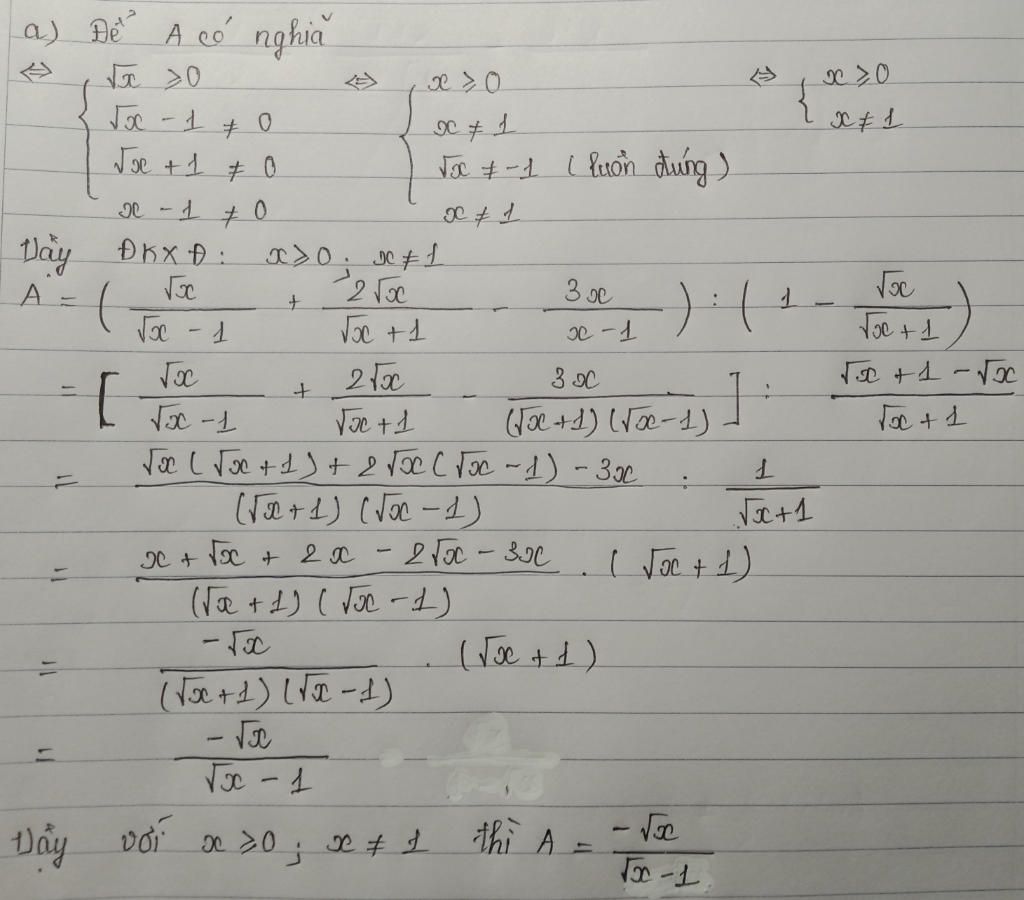 a) Để A có nghĩa
⇔ { √x ≥ 0 ⇔ { x ≥ 0 ⇔ { x ≥ 0
√x - 1 ≠ 0 x ≠ 1 x ≠ 1
√x + 1 ≠ 0 √x ≠ -1 (luôn đúng)
x - 1 ≠ 0 x ≠ 1
Vậy ĐKXĐ: x ≥ 0; x ≠ 1
A = ( √x/(√x - 1) + 2√x/(√x + 1) - 3x/(x - 1) ) : ( 1 - √x/(√x + 1) )
= [ √x/(√x - 1) + 2√x/(√x + 1) - 3x/((√x + 1)(√x - 1)) ] : (√x + 1 - √x)/(√x + 1)
= (√x(√x + 1) + 2√x(√x - 1) - 3x)/((√x + 1)(√x - 1)) : 1/(√x + 1)
= (x + √x + 2x - 2√x - 3x)/((√x + 1)(√x - 1)) . (√x + 1)
= -√x/((√x + 1)(√x - 1)) . (√x + 1)
= -√x/(√x - 1)
Vậy với x ≥ 0; x ≠ 1 thì A = -√x/(√x - 1)